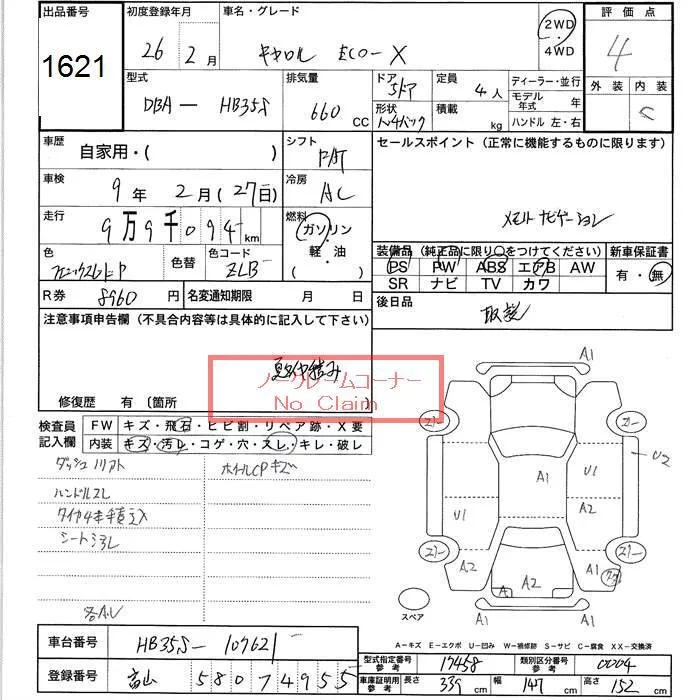 出品番号 初度登録年月 車名・グレード 2WD・4WD 評価点
1621 26年 2月 キャロル ECO-X 4
型式 排気量 ドア 5ドア 定員 4人 ディーラー・並行 外装 内装
DBA- HB35S 660cc 形状 積載 kg モデル年式 年 C
ハンドル 左・右
車歴 自家用・( ) シフト FAT セールスポイント (正常に機能するものに限ります)
車検 9年 2月 (27日) 冷房 AC
走行 9万9千094km 燃料 ガソリン・軽・油 ・( )
メモリナビゲーション
色 色替 色コード ZLB
装備品 (純正品に限り○をつけてください) 新車保証書
PS PW ABS エアB AW 有・無
SR ナビ TV カワ
R券 8960円 名変通知期限 月 日 後日品 取説
注意事項申告欄 (不具合内容等は具体的に記入して下さい)
ノークレームコーナー
No Claim
修復歴 有 〔箇所
検査員記入欄 FW キズ・飛石・ヒビ割・リペア跡・X要
内装 キズ・汚レ・コゲ・穴・スレ・キレ・破レ
ハンドルスレ
A1
U2
A1
U1
A2
U1
A2
A1
A
A2
A1
A1
スペア
A-キズ E-エクボ U-凹み W-補修跡 S-サビ C-腐食 XX-交換済
車台番号 HB35S- 109621
登録番号 富山 580 ア 4955
型式指定番号 参考 17458 類別区分番号 参考 0004
車庫証明用 参考 長さ 339cm 幅 147cm 高さ 152cm